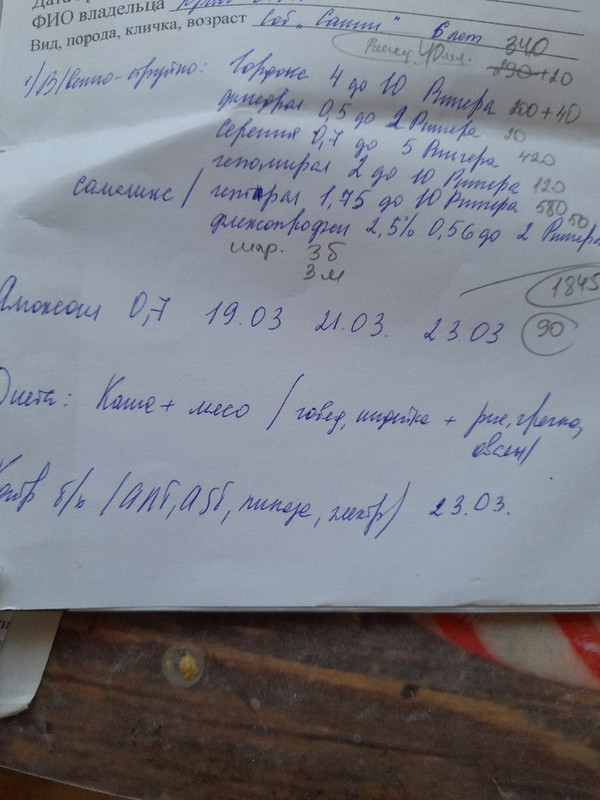 ФИО владельца
Вид, порода, кличка, возраст Соб. "Санни" 6 лет 340
Рингер 40мл. 290+20
1/В/венно-струйно: Гордокс 4 до 10 Рингера 200+40
0,5 до 2 Рингера 20
Серения 0,7 до 5 Рингера 420
гепомирал 2 до 10 Рингера 120
самеликс / гептрал 1,75 до 10 Рингера 580
флексопрофен 2,5% 0,56 до 2 Рингера 50
шпр. 3б
3м
1845
0,7 19.03 21.03. 23.03 90
Диета: Каша + мясо / говяд, индейка + рис, гречка,
овсян/
б/х /АЛТ, АСТ, липаза, электр/ 23.03.